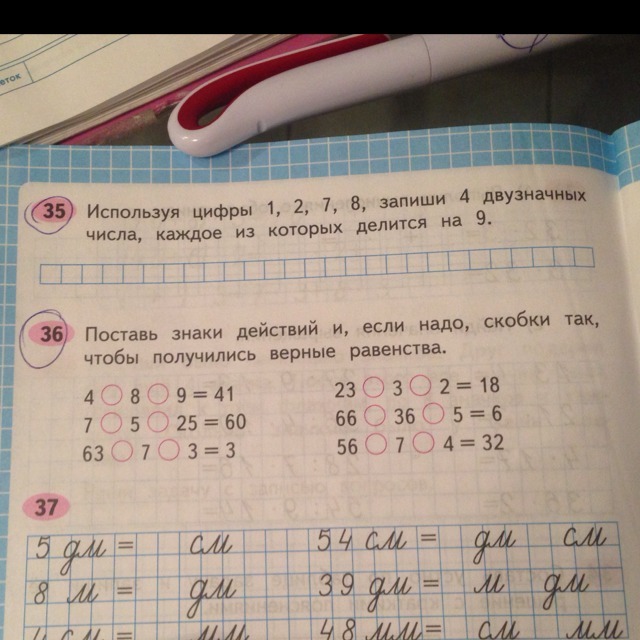 еток
35 Используя цифры 1, 2, 7, 8, запиши 4 двузначных
числа, каждое из которых делится на 9.
36 Поставь знаки действий и, если надо, скобки так,
чтобы получились верные равенства.
4 ○ 8 ○ 9 = 41
7 ○ 5 ○ 25 = 60
63 ○ 7 ○ 3 = 3
23 ○ 3 ○ 2 = 18
66 ○ 36 ○ 5 = 6
56 ○ 7 ○ 4 = 32
37
5 дм = см 54 см = дм см
8 м = дм 39 дм = м дм
мм 48 мм = см мм